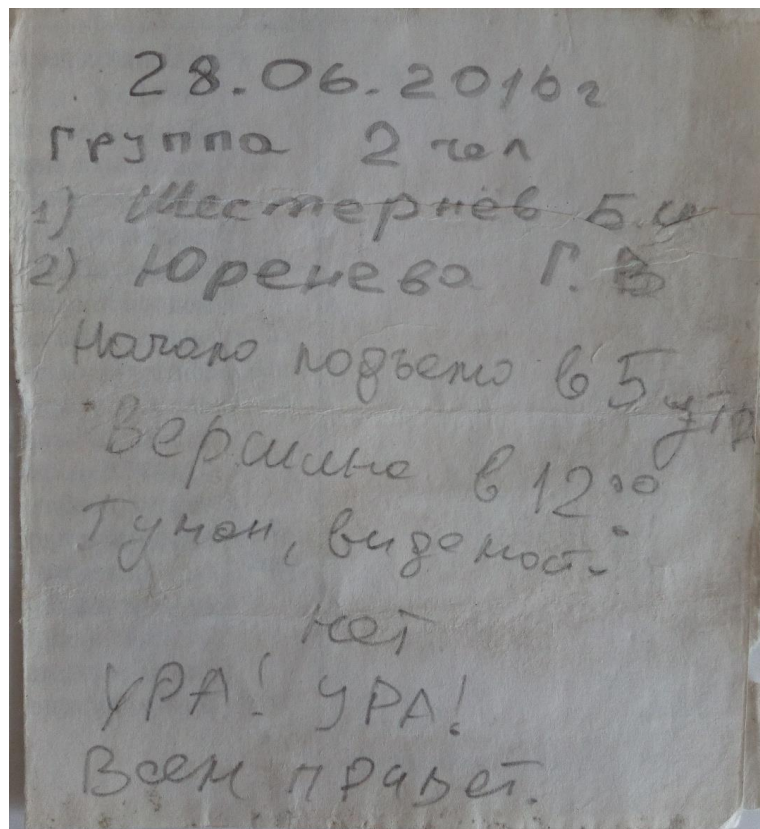 28.06.2016г
Группа 2 чел
1) Шестернев Б.И
2) Юренева Г.В
Начало подъема в 5 утра
Вершина в 12⁰⁰
Туман, видемость
нет
УРА! УРА!
Всем привет.